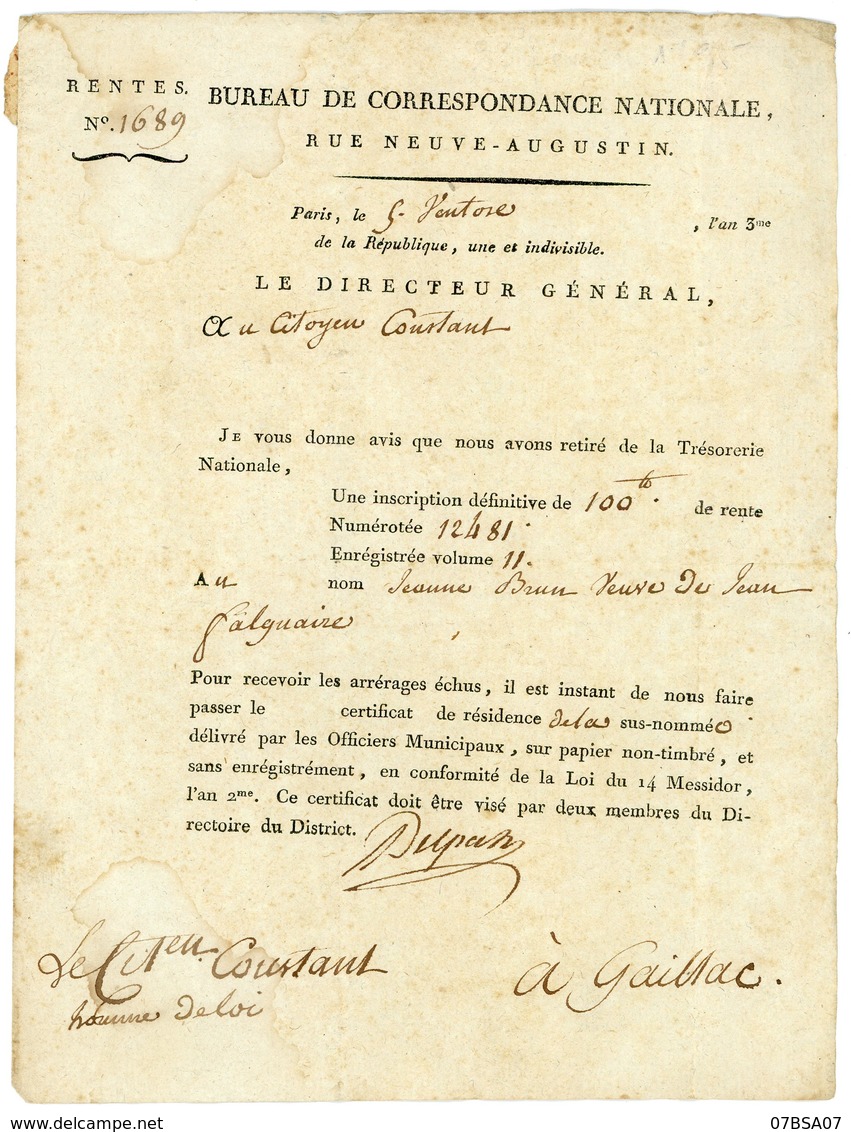 RENTES.
N°. 1689
BUREAU DE CORRESPONDANCE NATIONALE,
RUE NEUVE-AUGUSTIN.
Paris, le 5. Ventose , l'an 3me
de la République, une et indivisible.
LE DIRECTEUR GÉNÉRAL,
Au Citoyen Constant
JE vous donne avis que nous avons retiré de la Trésorerie
Nationale,
Une inscription définitive de 100 tt. de rente
Numérotée 12481.
Enrégistrée volume 11.
Au nom Jeanne Brun Veuve De Jean
falguaire
Pour recevoir les arrérages échus, il est instant de nous faire
passer le certificat de résidence dela sus-nommée
délivré par les Officiers Municipaux, sur papier non-timbré, et
sans enrégistrément, en conformité de la Loi du 14 Messidor,
l'an 2me. Ce certificat doit être visé par deux membres du Di-
rectoire du District.
Le Cit.en Constant à Gaillac.
homme deloi
delcampe.net 07BSA07